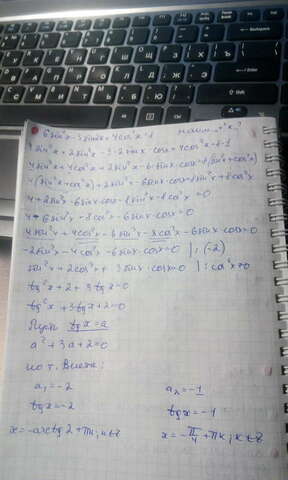 6 sin²x - 3 sin2x + 4cos²x = 8
4 sin²x + 2 sin²x - 3 · 2 sinx · cosx + 4cos²x = 8 · 1
4 sin²x + 4cos²x + 2 sin²x - 6 · sinx · cosx = 8 (sin²x + cos²x)
4 (sin²x + cos²x) + 2 sin²x - 6 sinx · cosx = 8 sin²x + 8 cos²x
4 + 2 sin²x - 6 sinx · cosx - 8 sin²x - 8 cos²x = 0
4 - 6 sin²x - 8 cos²x - 6 sinx · cosx = 0
4 sin²x + 4cos²x - 6 sin²x - 8 cos²x - 6 sinx · cosx = 0
-2 sin²x - 4 cos²x - 6 sinx · cosx = 0 | : (-2)
sin²x + 2cos²x + 3 sinx · cosx = 0 | : cos²x ≠ 0
tg²x + 2 + 3 tgx = 0
tg²x + 3 tgx + 2 = 0
Пусть tgx = a
a² + 3a + 2 = 0
по т. Виета:
a₁ = -2 a₂ = -1
tgx = -2 tgx = -1
x = -arctg 2 + πn, n∈Z x = -π/4 + πk, k∈Z